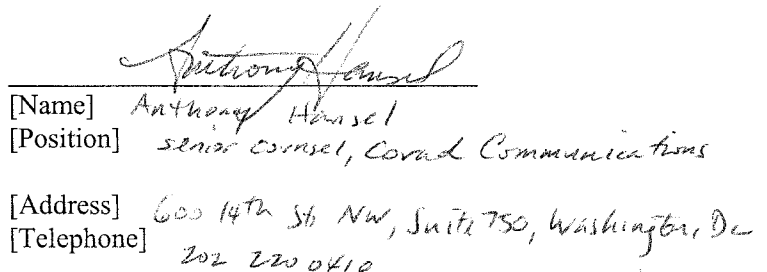 Anthony Hansel
[Name] Anthony Hansel
[Position] senior counsel, Covad Communications
[Address] 600 14th St NW, Suite 750, Washington, DC
[Telephone] 202 220 0410